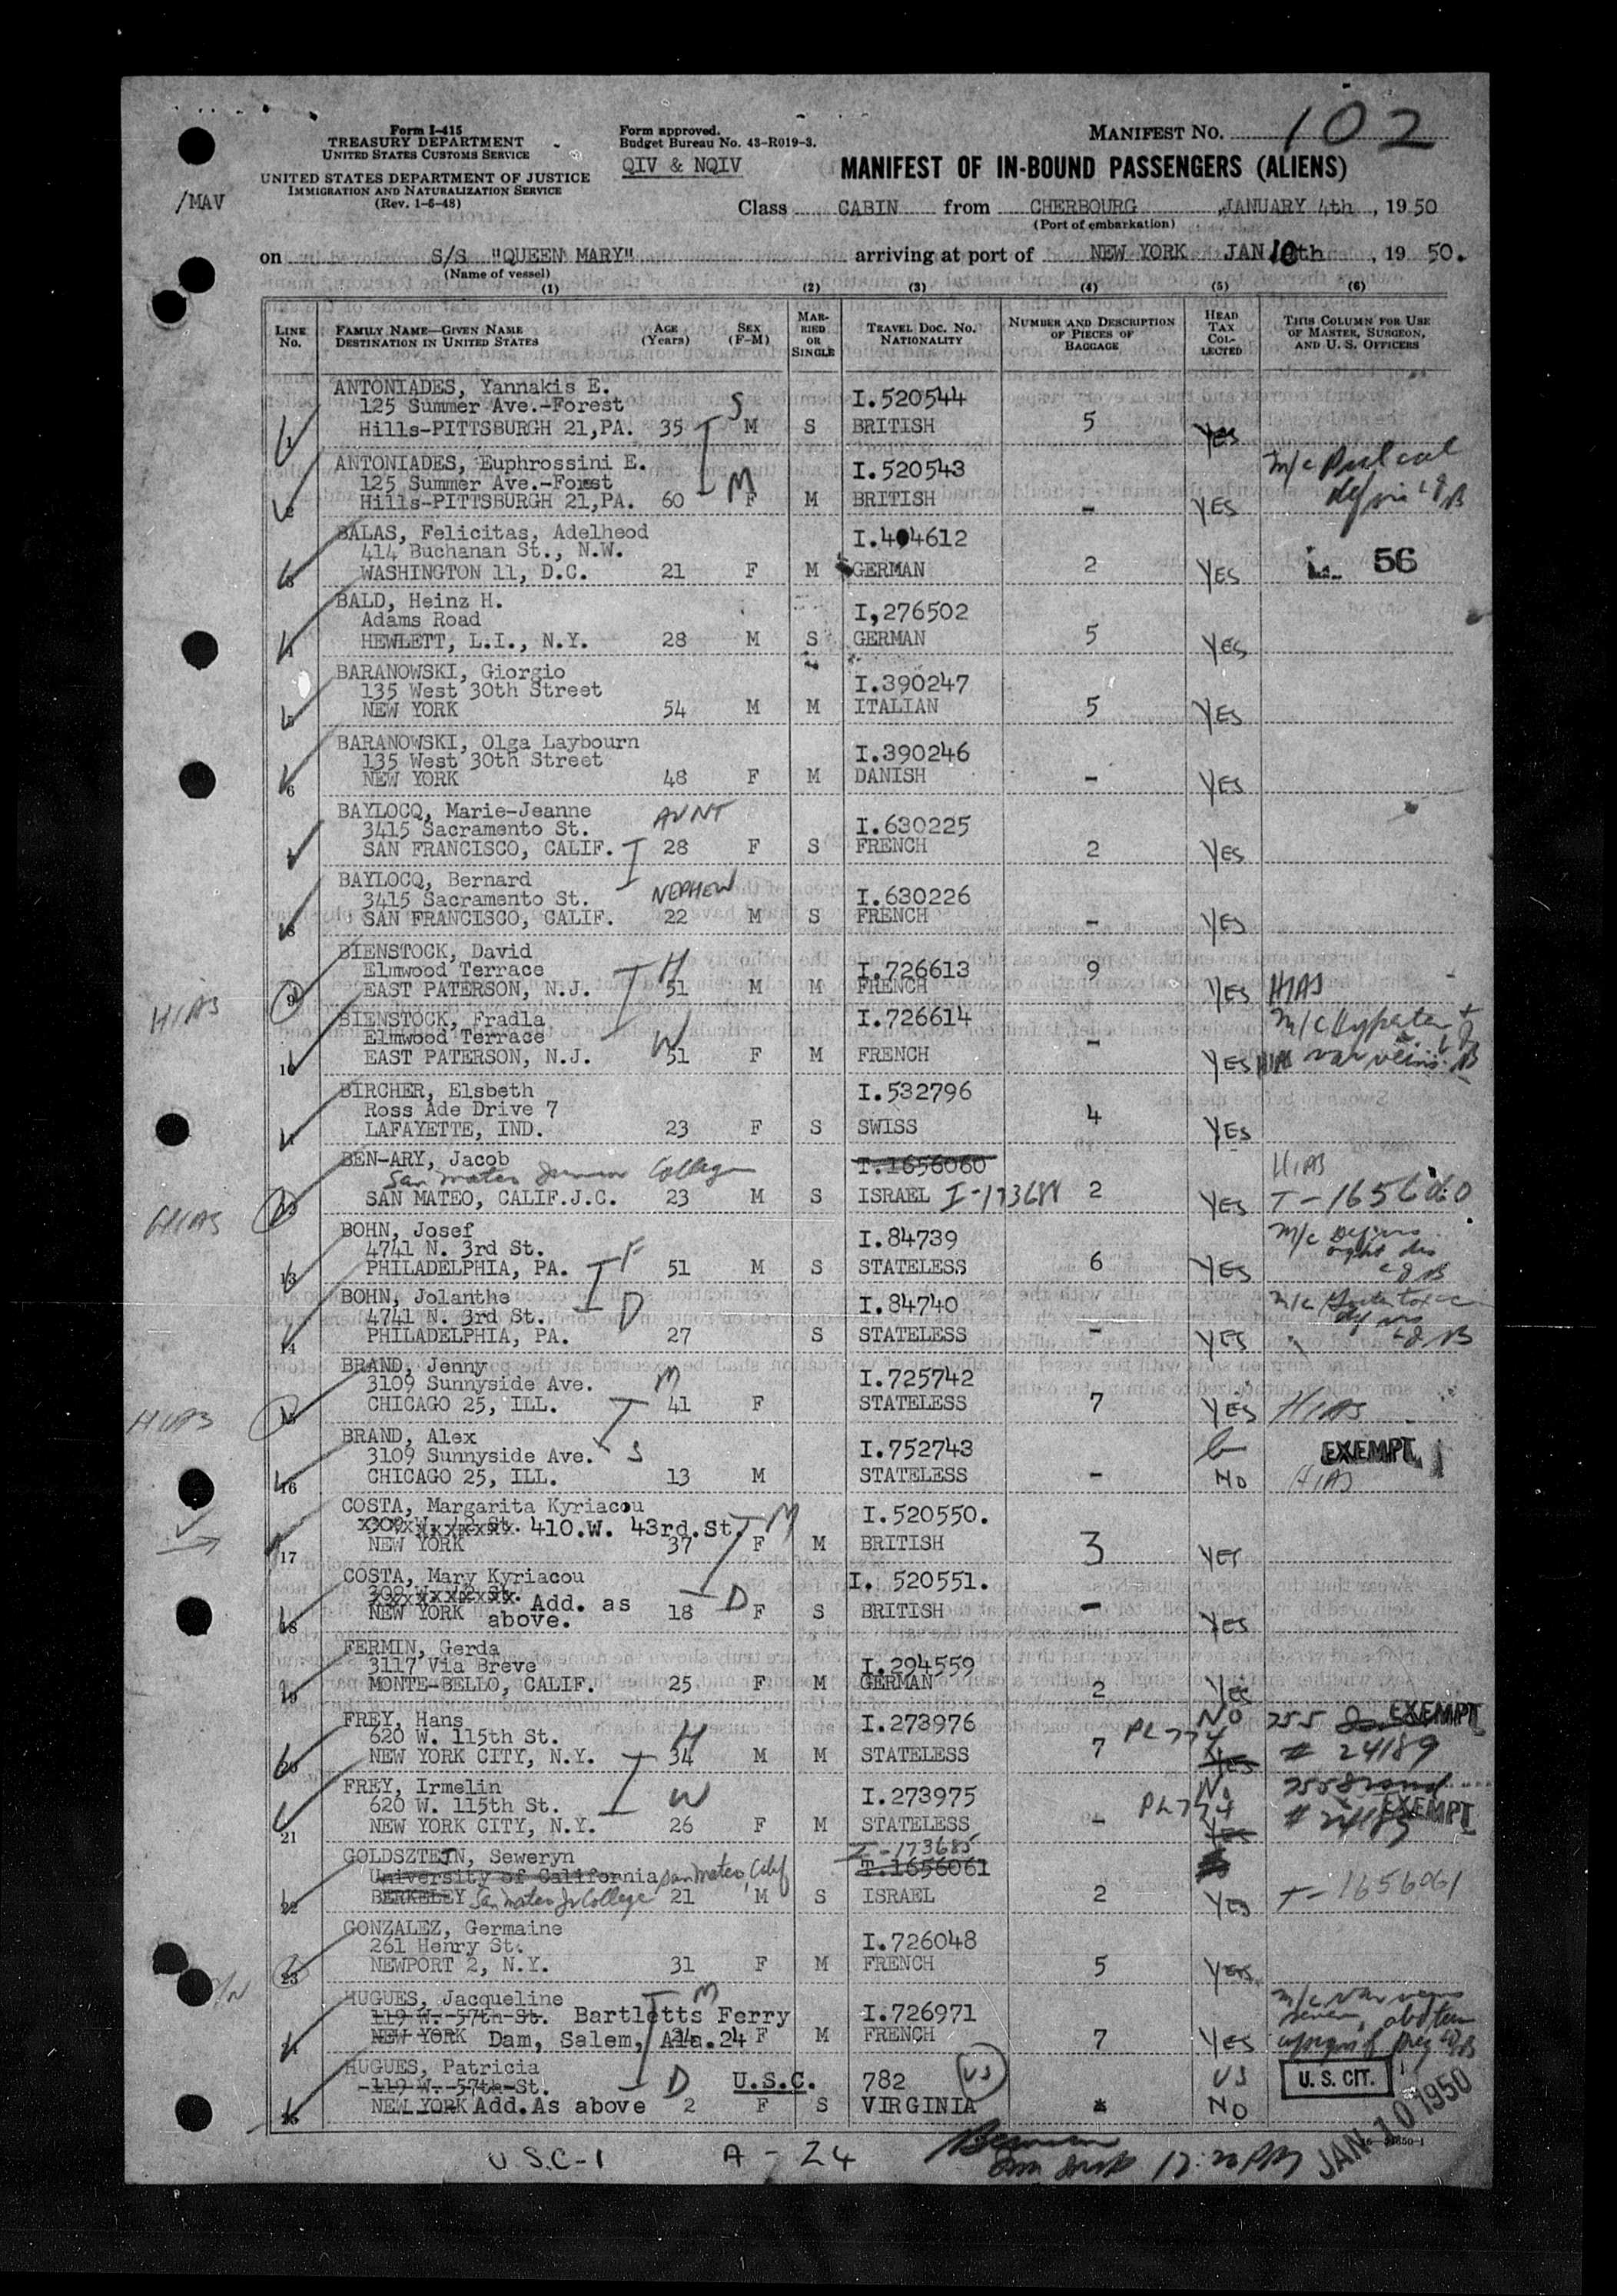 Form I-415
TREASURY DEPARTMENT
UNITED STATES CUSTOMS SERVICE
UNITED STATES DEPARTMENT OF JUSTICE
IMMIGRATION AND NATURALIZATION SERVICE
(Rev. 1-6-48)
/MAV
Form approved.
Budget Bureau No. 43-R019-3.
QIV & NQIV
MANIFEST NO. 102
MANIFEST OF IN-BOUND PASSENGERS (ALIENS)
Class CABIN from CHERBOURG, JANUARY 4th, 1950
(Port of embarkation)
on S/S "QUEEN MARY" arriving at port of NEW YORK JAN 10th, 19 50.
(Name of vessel)
(1) (2) (3) (4) (5) (6)
LINE No.
FAMILY NAME—GIVEN NAME
DESTINATION IN UNITED STATES
AGE (Years)
SEX (F-M)
MARRIED OR SINGLE
TRAVEL DOC. NO.
NATIONALITY
NUMBER AND DESCRIPTION OF PIECES OF BAGGAGE
HEAD TAX COLLECTED
THIS COLUMN FOR USE OF MASTER, SURGEON, AND U. S. OFFICERS
ANTONIADES, Yannakis E. I.520544
125 Summer Ave.-Forest S
1 Hills-PITTSBURGH 21,PA. 35 M S BRITISH 5 YES
ANTONIADES, Euphrossini E. I.520543 m/c
125 Summer Ave.-Forest M
2 Hills-PITTSBURGH 21,PA. 60 F M BRITISH - YES
BALAS, Felicitas, Adelheod I.404612
414 Buchanan St., N.W. 56
3 WASHINGTON 11, D.C. 21 F M GERMAN 2 YES
BALD, Heinz H. I,276502
Adams Road
4 HEWLETT, L.I., N.Y. 28 M S GERMAN 5 YES
BARANOWSKI, Giorgio I.390247
135 West 30th Street
5 NEW YORK 54 M M ITALIAN 5 YES
BARANOWSKI, Olga Laybourn I.390246
135 West 30th Street
6 NEW YORK 48 F M DANISH - YES
BAYLOCQ, Marie-Jeanne AUNT I.630225
3415 Sacramento St.
7 SAN FRANCISCO, CALIF. 28 F S FRENCH 2 YES
BAYLOCQ, Bernard NEPHEW I.630226
3415 Sacramento St.
8 SAN FRANCISCO, CALIF. 22 M S FRENCH - YES
BIENSTOCK, David H I.726613
Elmwood Terrace
HIAS 9 EAST PATERSON, N.J. 51 M M FRENCH 9 YES HIAS
BIENSTOCK, Fradla I.726614 m/c
Elmwood Terrace W
10 EAST PATERSON, N.J. 51 F M FRENCH - YES HIAS var veins
BIRCHER, Elsbeth I.532796
Ross Ade Drive 7
11 LAFAYETTE, IND. 23 F S SWISS 4 YES
BEN-ARY, Jacob T.1656060 HIAS
San Mateo Junior College
HIAS SAN MATEO, CALIF.J.C. 23 M S ISRAEL I-173688 2 YES T-1656060
BOHN, Josef I.84739 m/c
4741 N. 3rd St. F
13 PHILADELPHIA, PA. 51 M S STATELESS 6 YES
BOHN, Jolanthe I.84740 m/c
4741 N. 3rd St. D
14 PHILADELPHIA, PA. 27 S STATELESS - YES
BRAND, Jenny M I.725742
3109 Sunnyside Ave.
HIAS 15 CHICAGO 25, ILL. 41 F STATELESS 7 YES HIAS
BRAND, Alex I.752743 EXEMPT
3109 Sunnyside Ave. S
16 CHICAGO 25, ILL. 13 M STATELESS - NO HIAS
COSTA, Margarita Kyriacou I.520550.
410.W. 43rd.St. M
17 NEW YORK 37 F M BRITISH 3 YES
COSTA, Mary Kyriacou I. 520551.
Add. as above. D
18 NEW YORK 18 F S BRITISH - YES
FERMIN, Gerda I.294559
3117 Via Breve
19 MONTE-BELLO, CALIF. 25 F M GERMAN 2 YES
FREY, Hans I.273976 NO 255 EXEMPT
620 W. 115th St. H PL 774
20 NEW YORK CITY, N.Y. 34 M M STATELESS 7 YES # 24189
FREY, Irmelin I.273975 No EXEMPT
620 W. 115th St. W PL 774
21 NEW YORK CITY, N.Y. 26 F M STATELESS - YES # 24189
GOLDSZTEJN, Seweryn I-173685
University of California San Mateo, Calif T.1656061
22 BERKELEY San Mateo Jr College 21 M S ISRAEL 2 YES T-1656061
GONZALEZ, Germaine I.726048
261 Henry St.
23 NEWPORT 2, N.Y. 31 F M FRENCH 5 YES
HUGUES, Jacqueline M I.726971 m/c var veins
119 W. 57th St. Bartletts Ferry
NEW YORK Dam, Salem, Ala. 24 F M FRENCH 7 YES
HUGUES, Patricia
119 W. 57th St. D U.S.C. 782 US US U. S. CIT.
NEW YORK Add. As above 2 F S VIRGINIA * NO
JAN 10 1950
USC-1 A-24